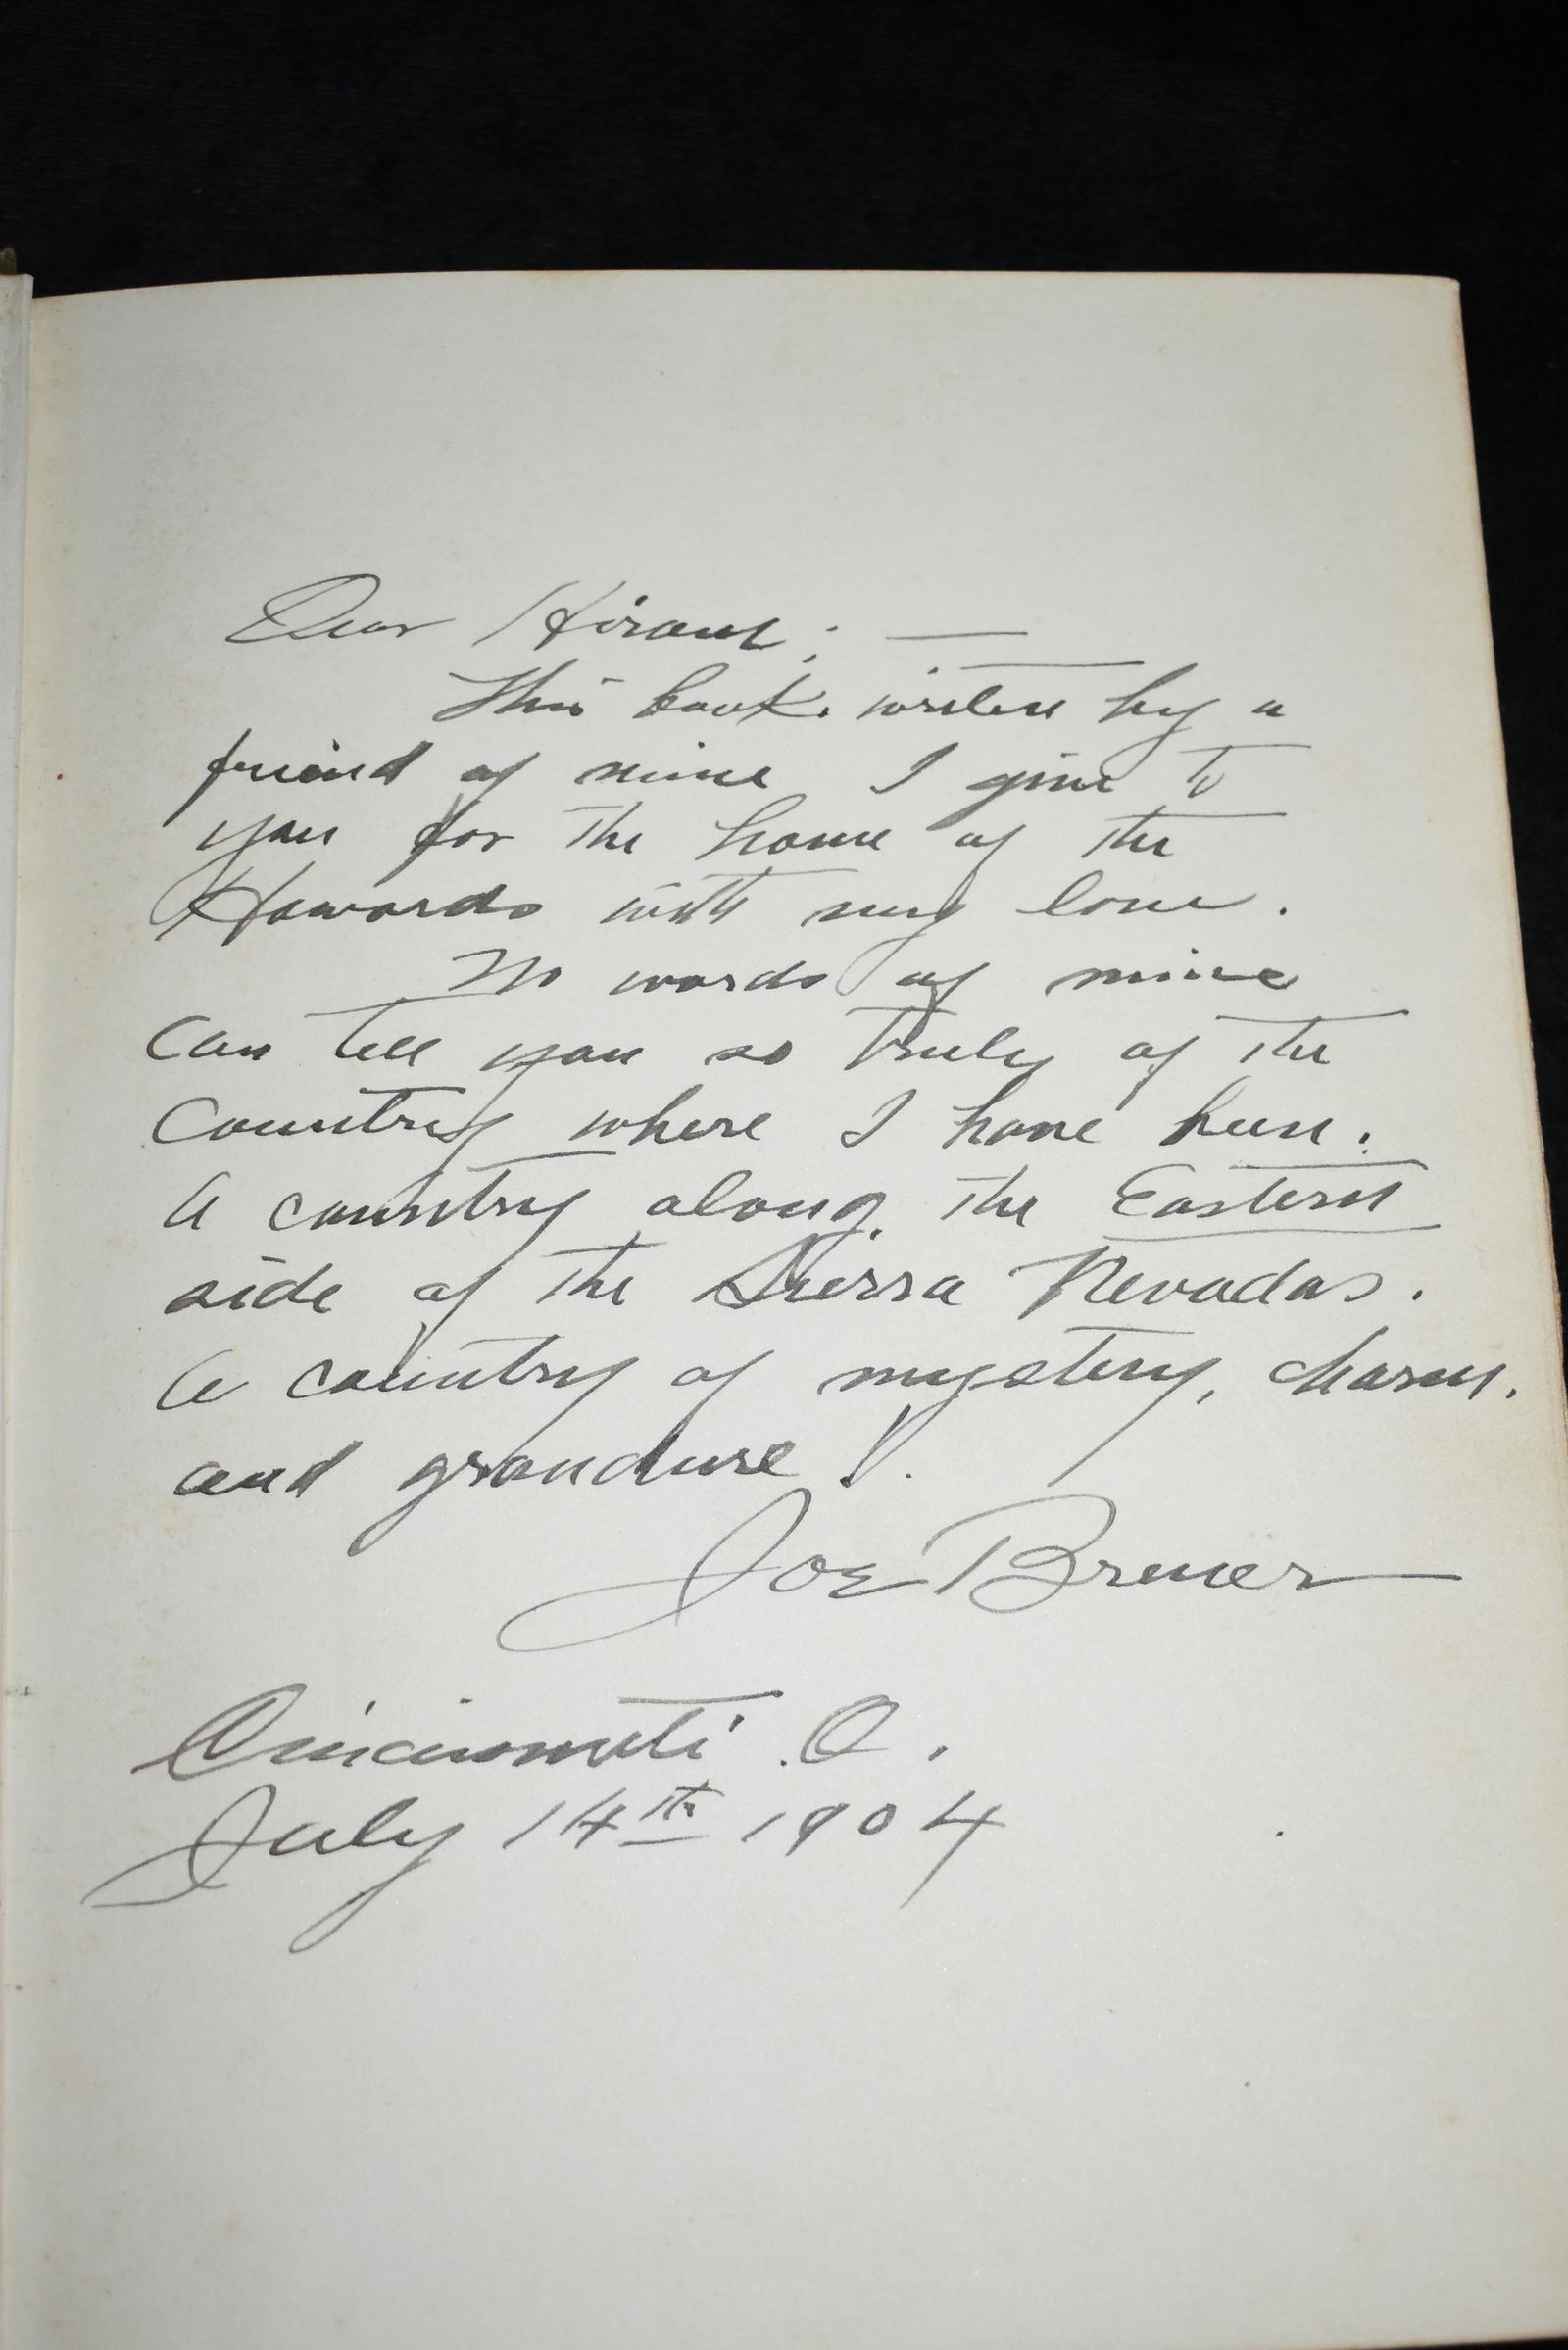 Dear Hiram; —
This book. writen by a
friend of mine I give to
you for the home of the
Howards with my love.
No words of mine
can tell you so truly of the
Country where I have been.
A country along the Eastern
side of the Sierra Nevadas.
A country of mystery, charm,
and grandure!
Joe
Cincinnati O.
July 14th 1904